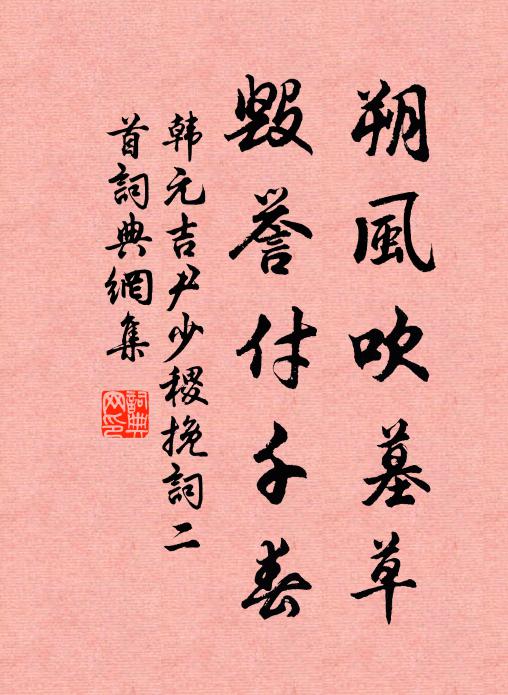 朔風吹墓草
毀譽付千春
韩元吉尹少稷挽詞二
首詞典網集
詞典
网印